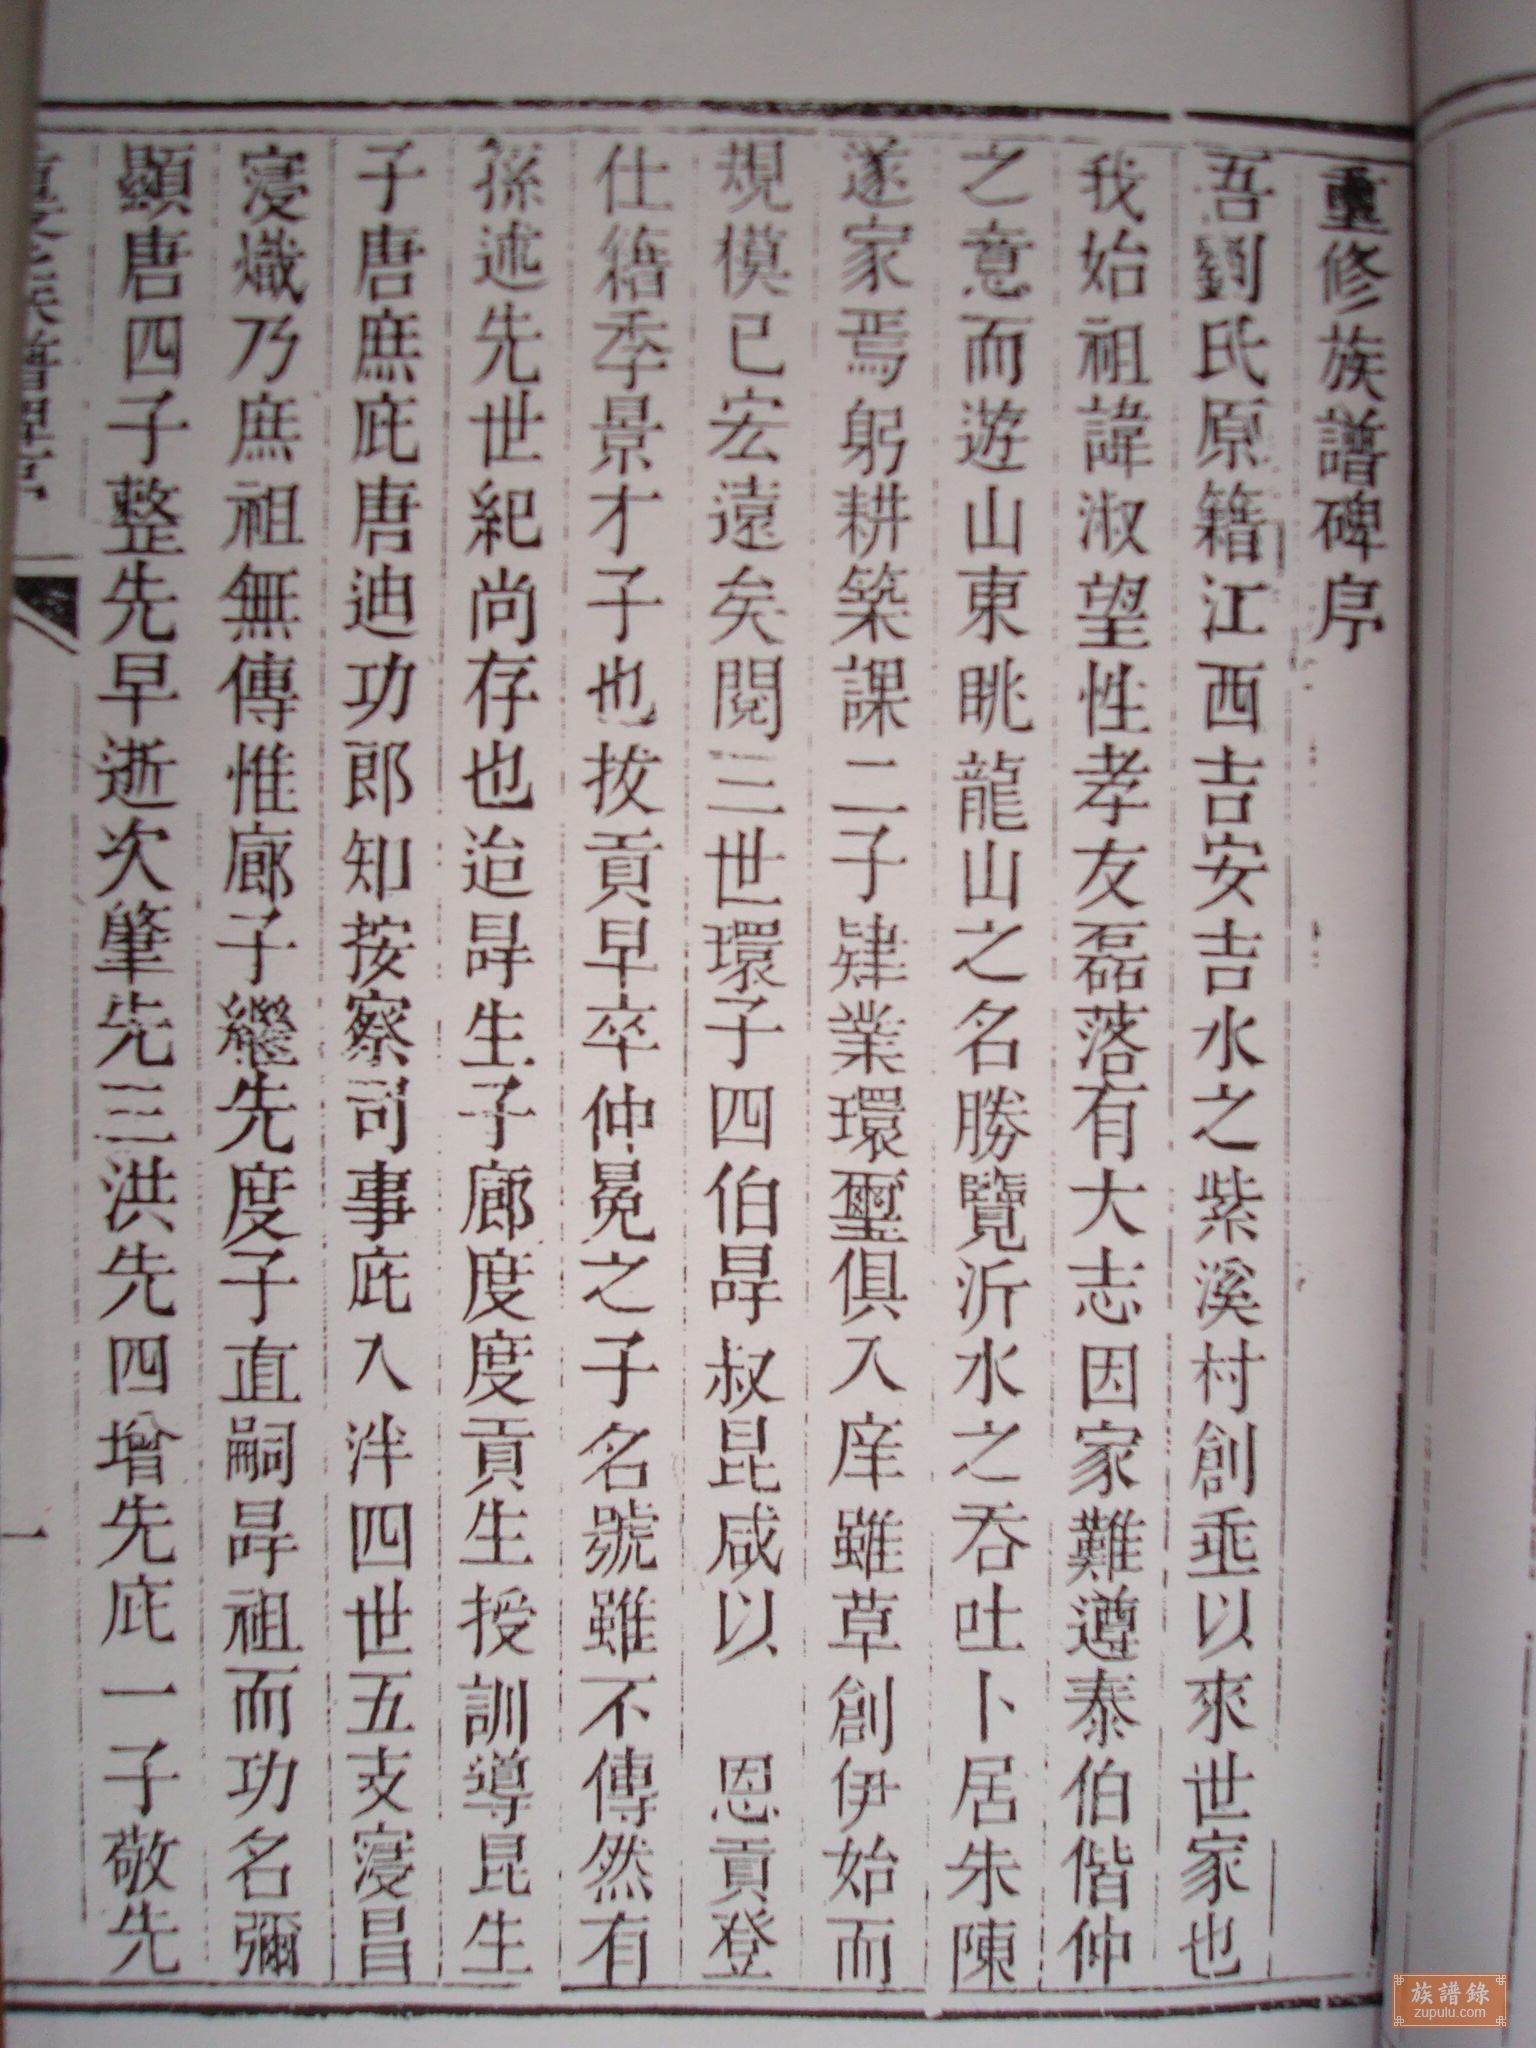 重修族譜碑序
吾劉氏原籍江西吉安吉水之紫溪村創垂以來世家也
我始祖諱淑望性孝友磊落有大志因家難遵泰伯偕仲
之意而遊山東眺龍山之名勝覽沂水之吞吐卜居朱陳
遂家焉躬耕築課二子肄業環璽俱入庠雖草創伊始而
規模已宏遠矣閱三世環子四伯曻叔昆咸以　恩貢登
仕籍季景才子也拔貢早卒仲冕之子名號雖不傳然有
孫述先世紀尚存也迨曻生子廊度度貢生授訓導昆生
子唐庶庇唐迪功郎知按察司事庇入泮四世五支寖昌
寖熾乃庶祖無傳惟廊子繼先度子直嗣曻祖而功名彌
顯唐四子整先早逝次肇先三洪先四增先庇一子敬先
重修族譜碑序
一
族譜錄
zupulu.com